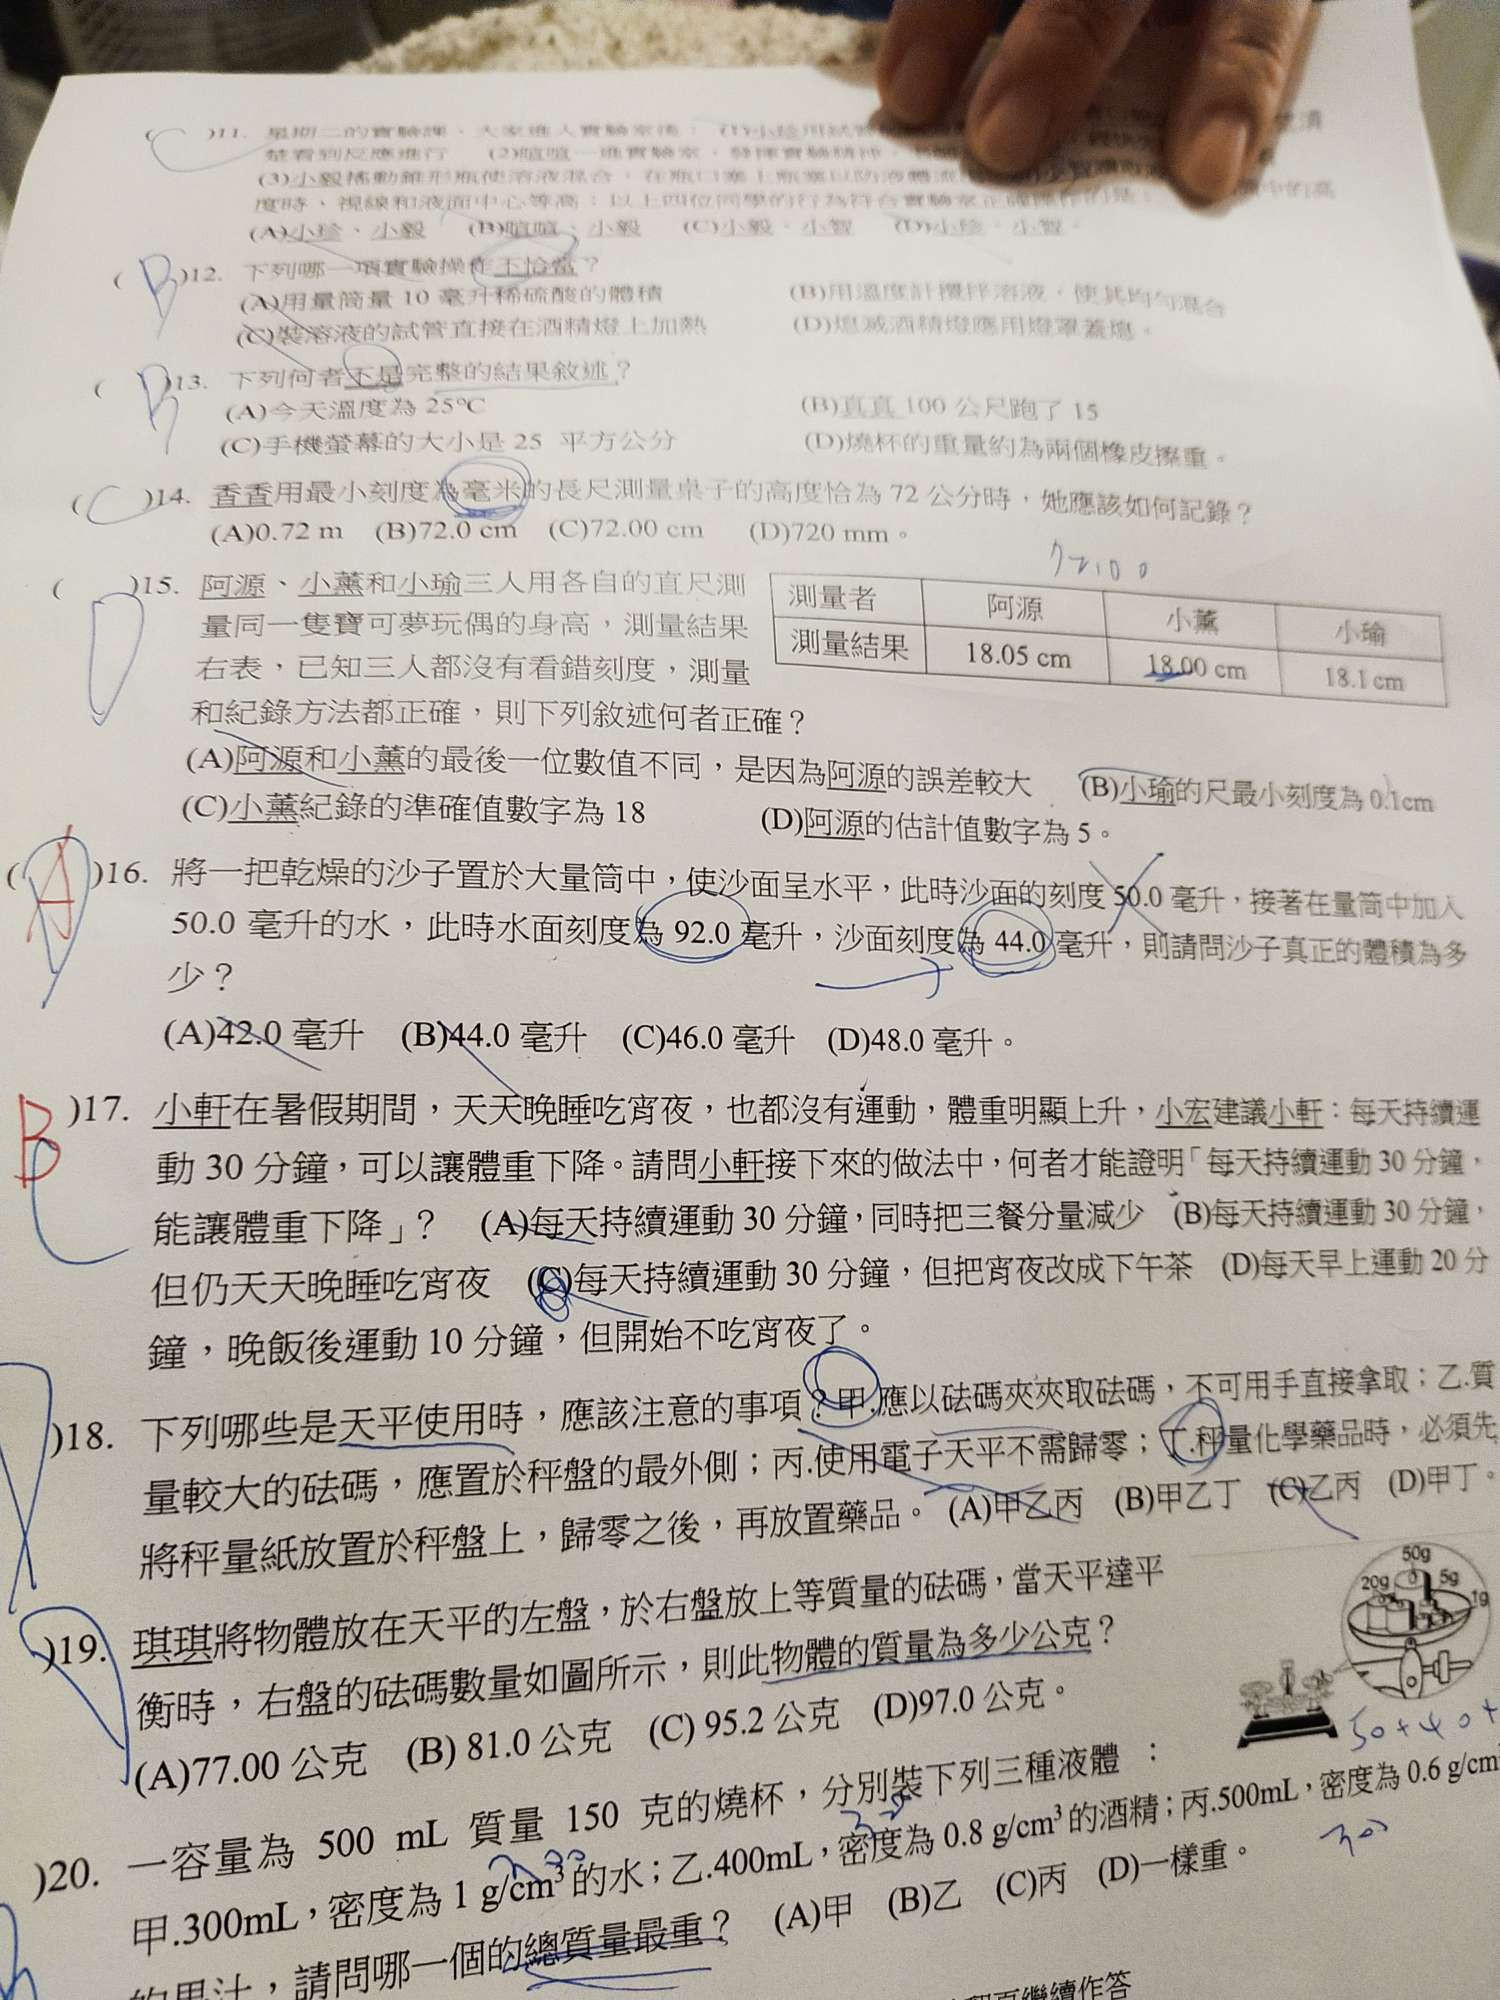 ( C )11. 星期二的實驗課,大家進入實驗室後: (1)小珍用試管
楚看到反應進行 (2)暄暄一進實驗室,發揮實驗精神,
(3)小毅搖動錐形瓶使溶液混合,在瓶口塞上瓶塞以防液體流出
度時,視線和液面中心等高;以上四位同學的行為符合實驗室正確操作的是:
(A)小珍、小毅 (B)暄暄、小毅 (C)小毅、小智 (D)小珍、小智。
( B )12. 下列哪一項實驗操作不恰當?
(A)用量筒量 10 毫升稀硫酸的體積 (B)用溫度計攪拌溶液,使其均勻混合
(C)裝溶液的試管直接在酒精燈上加熱 (D)熄滅酒精燈應用燈罩蓋熄。
( B )13. 下列何者不是完整的結果敘述?
(A)今天溫度為 25℃ (B)真真 100 公尺跑了 15
(C)手機螢幕的大小是 25 平方公分 (D)燒杯的重量約為兩個橡皮擦重。
( C )14. 香香用最小刻度為毫米的長尺測量桌子的高度恰為 72 公分時,她應該如何記錄?
(A)0.72 m (B)72.0 cm (C)72.00 cm (D)720 mm。
72.00
( D )15. 阿源、小薰和小瑜三人用各自的直尺測
量同一隻寶可夢玩偶的身高,測量結果
右表,已知三人都沒有看錯刻度,測量
和紀錄方法都正確,則下列敘述何者正確?
測量者 阿源 小薰 小瑜
測量結果 18.05 cm 18.00 cm 18.1 cm
(A)阿源和小薰的最後一位數值不同,是因為阿源的誤差較大 (B)小瑜的尺最小刻度為 0.1cm
(C)小薰紀錄的準確值數字為 18 (D)阿源的估計值數字為 5。
( A )16. 將一把乾燥的沙子置於大量筒中,使沙面呈水平,此時沙面的刻度 50.0 毫升,接著在量筒中加入
50.0 毫升的水,此時水面刻度為 92.0 毫升,沙面刻度為 44.0 毫升,則請問沙子真正的體積為多
少?
(A)42.0 毫升 (B)44.0 毫升 (C)46.0 毫升 (D)48.0 毫升。
B )17. 小軒在暑假期間,天天晚睡吃宵夜,也都沒有運動,體重明顯上升,小宏建議小軒:每天持續運
動 30 分鐘,可以讓體重下降。請問小軒接下來的做法中,何者才能證明「每天持續運動 30 分鐘,
能讓體重下降」? (A)每天持續運動 30 分鐘,同時把三餐分量減少 (B)每天持續運動 30 分鐘,
但仍天天晚睡吃宵夜 (C)每天持續運動 30 分鐘,但把宵夜改成下午茶 (D)每天早上運動 20 分
鐘,晚飯後運動 10 分鐘,但開始不吃宵夜了。
)18. 下列哪些是天平使用時,應該注意的事項?甲.應以砝碼夾夾取砝碼,不可用手直接拿取;乙.質
量較大的砝碼,應置於秤盤的最外側;丙.使用電子天平不需歸零;丁.秤量化學藥品時,必須先
將秤量紙放置於秤盤上,歸零之後,再放置藥品。 (A)甲乙丙 (B)甲乙丁 (C)乙丙 (D)甲丁。
)19. 琪琪將物體放在天平的左盤,於右盤放上等質量的砝碼,當天平達平
衡時,右盤的砝碼數量如圖所示,則此物體的質量為多少公克?
(A)77.00 公克 (B) 81.0 公克 (C) 95.2 公克 (D)97.0 公克。
50g
20g 5g
1g
50+40+
)20. 一容量為 500 mL 質量 150 克的燒杯,分別裝下列三種液體:
甲.300mL,密度為 1 g/cm³的水;乙.400mL,密度為 0.8 g/cm³的酒精;丙.500mL,密度為 0.6 g/cm
的果汁,請問哪一個的總質量最重? (A)甲 (B)乙 (C)丙 (D)一樣重。
繼續作答